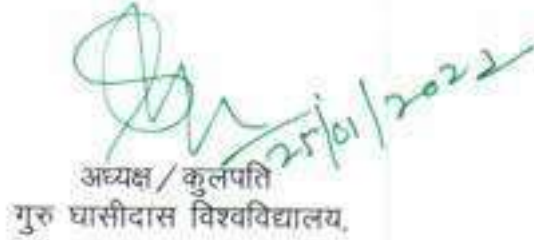 25/01/2022
अध्यक्ष / कुलपति
गुरु घासीदास विश्वविद्यालय,